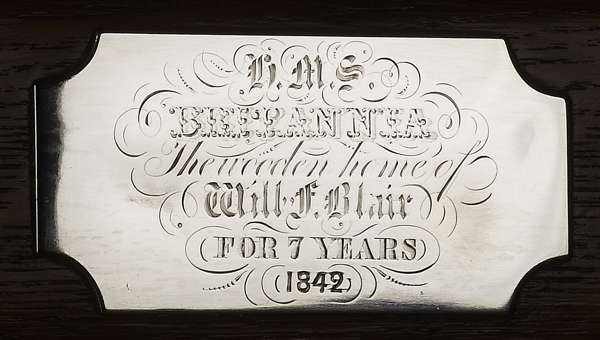 H.M.S.
BRITANNIA
The wooden home of
Will F. Blair
FOR 7 YEARS
1842